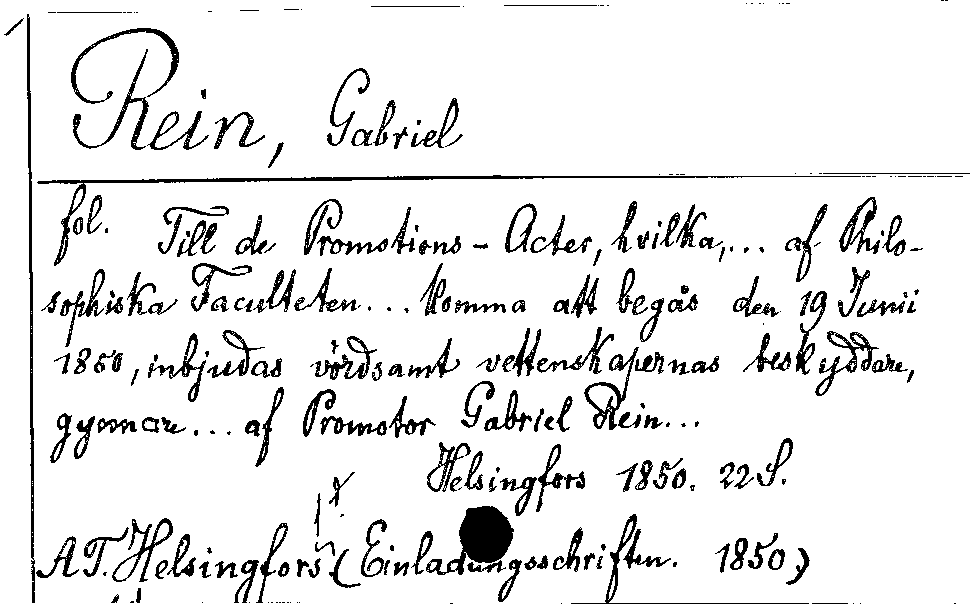 Rein, Gabriel
fol. Till de Promotions-Acter, hvilka,... af Philo-
sophiska Faculteten... komma att begås den 19 Junii
1850, inbjudas vördsamt vettenskapernas beskyddare,
gynnare... af Promotor Gabriel Rein...
Helsingfors 1850. 22 S.
AT. Helsingfors (Einladungsschriften. 1850)